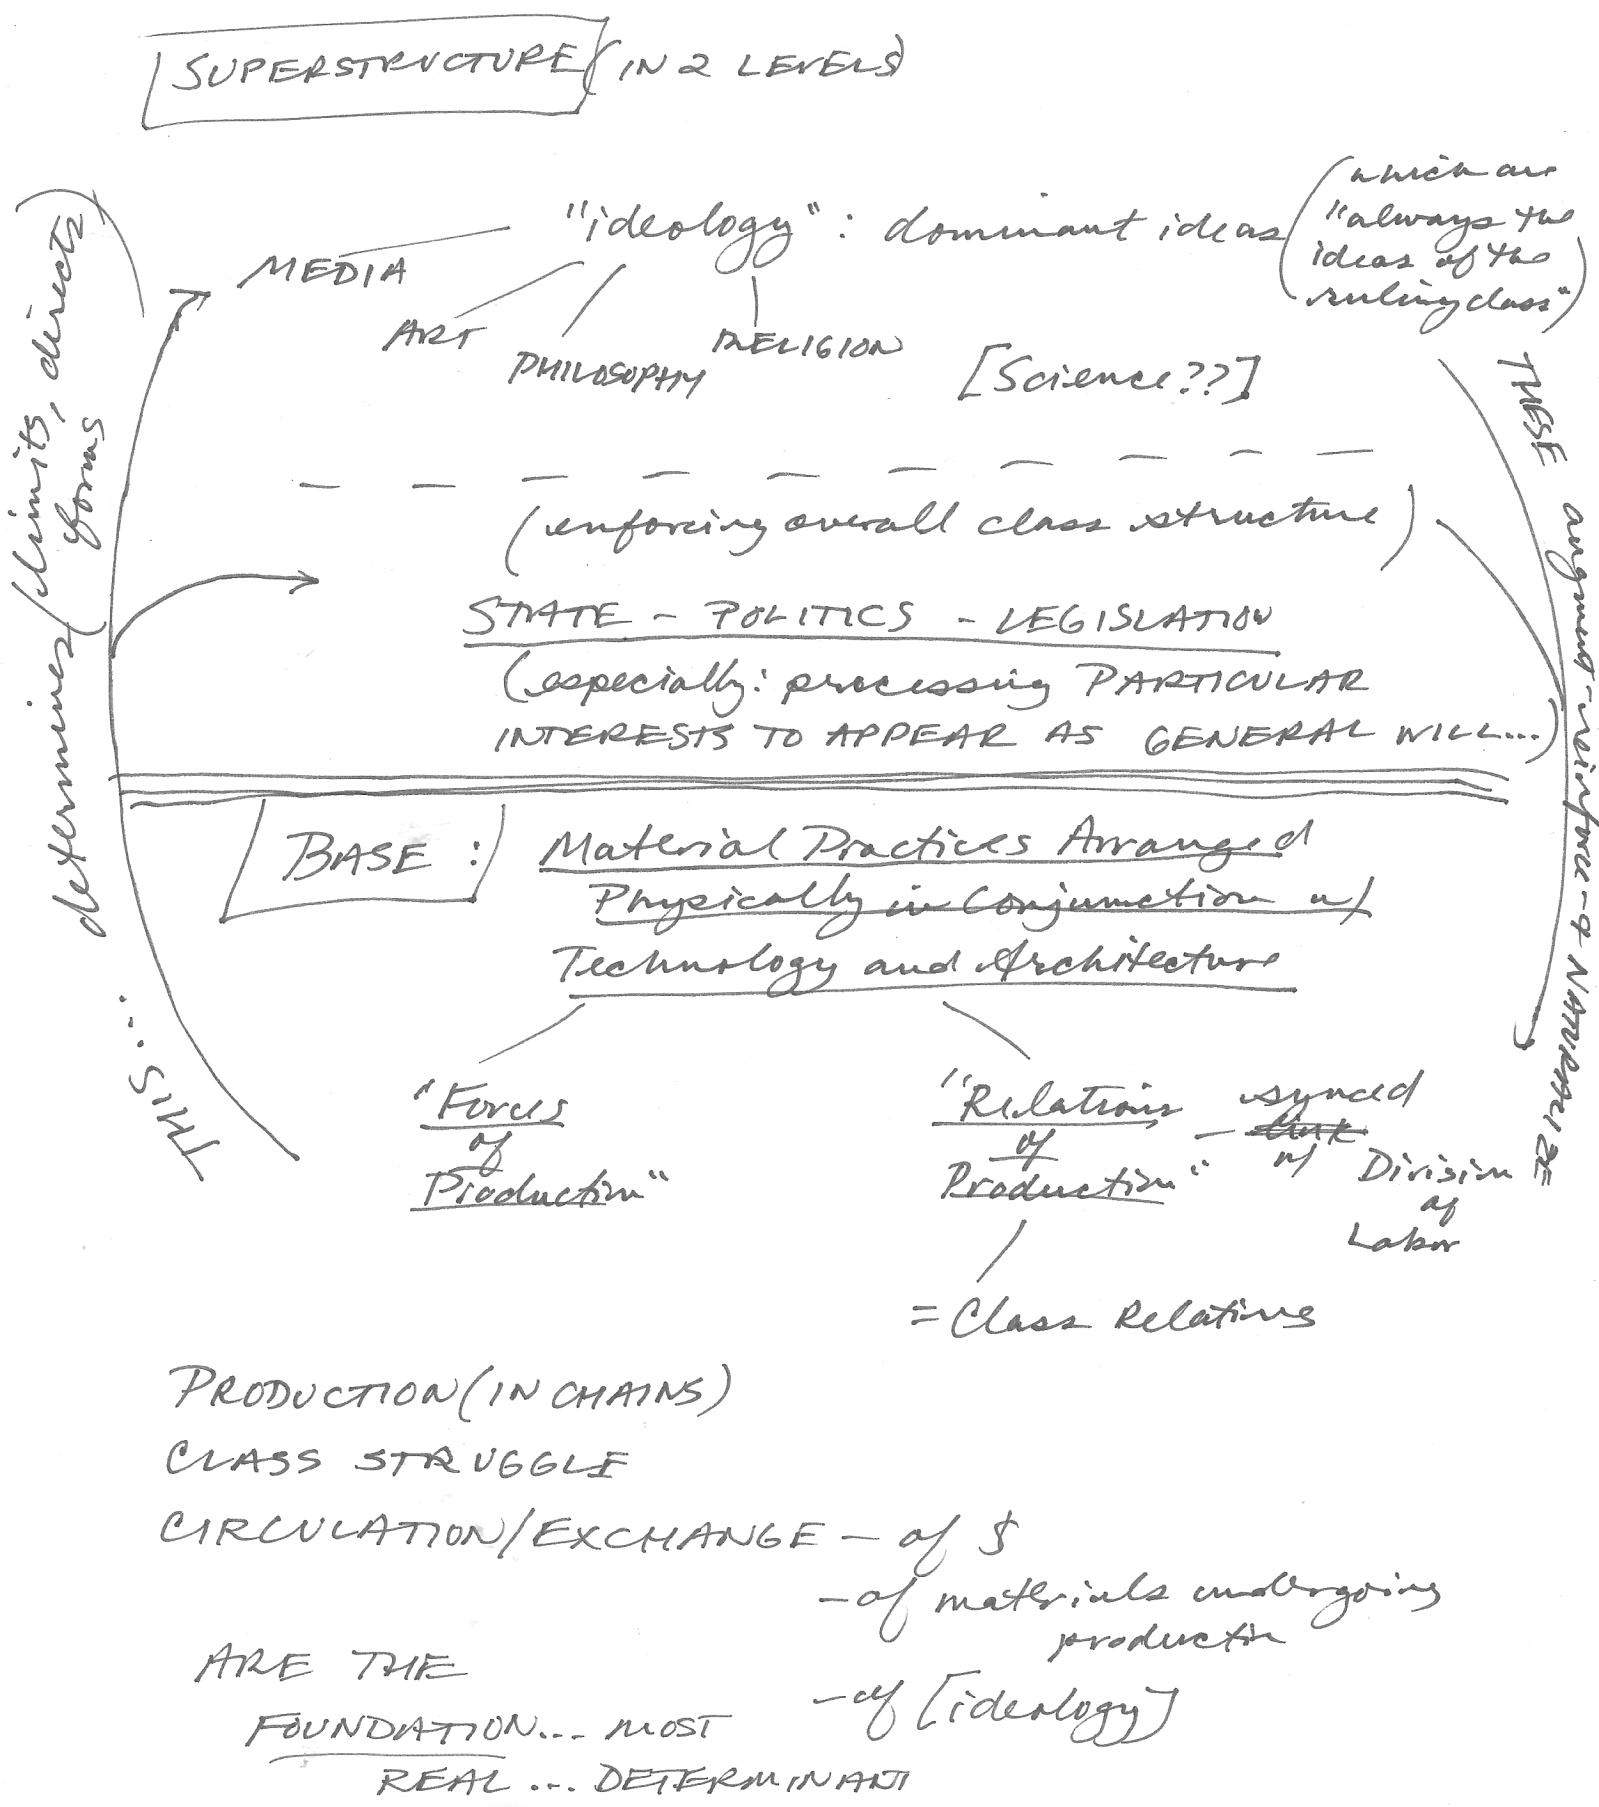 SUPERSTRUCTURE (IN 2 LEVELS)
"ideology": dominant ideas
(which are
"always the
ideas of the
ruling class")
MEDIA
ART
PHILOSOPHY
RELIGION
[Science??]
(enforcing overall class structure)
STATE - POLITICS - LEGISLATION
(especially: processing PARTICULAR
INTERESTS TO APPEAR AS GENERAL WILL...)
THIS... determines (limits, directs)
forms
THESE augment-reinforce-& NATURALIZE
BASE: Material Practices Arranged
Physically in Conjunction w/
Technology and Architecture
"Forces
of
Production"
"Relations
of
Production" -
synced
link
w/
Division
of
Labor
= Class Relations
PRODUCTION (IN CHAINS)
CLASS STRUGGLE
CIRCULATION/EXCHANGE - of $
- of materials undergoing
production
- of [ideology]
ARE THE
FOUNDATION... MOST
REAL... DETERMINANT